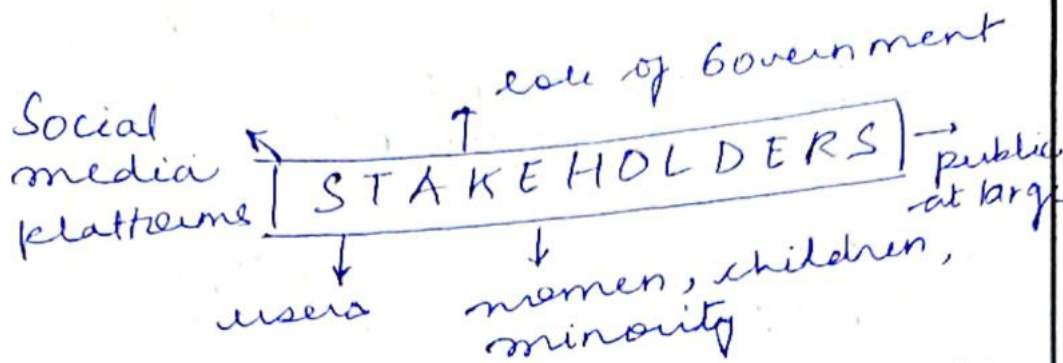 role of Government
Social
media
platforms
STAKEHOLDERS
public
at large
users
women, children,
minority